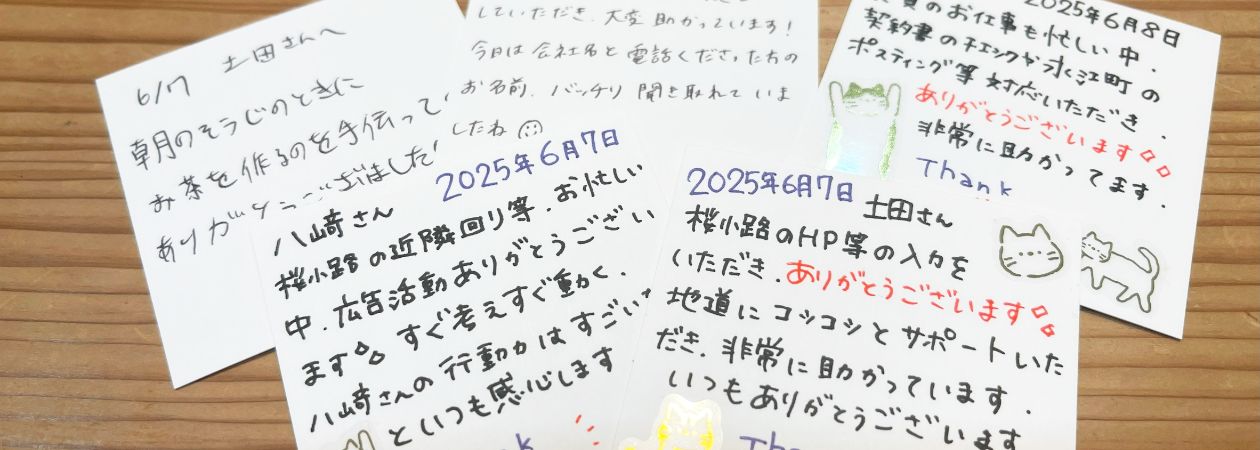 6/7 土田さんへ
朝のそうじのときに
お茶を作るのを手伝って
ありがとうございました!
していただき、大変助かっています!
今日は会社名と電話くださった方の
お名前、バッチリ聞き取れていま
したね
2025年6月8日
のお仕事も忙しい中、
契約書のチェックや永江町の
ポスティング等対応いただき、
ありがとうございます
非常に助かってます。
Thank
2025年6月7日
八﨑さん
桜小路の近隣回り等、お忙しい
中、広告活動ありがとうござい
ます。すぐ考えすぐ動く、
八﨑さんの行動力はすごい
といつも感心します
2025年6月7日 土田さん
桜小路のHP等の入力を
いただき、ありがとうございます
地道にコツコツとサポートいた
だき、非常に助かっています。
いつもありがとうございます
Thank